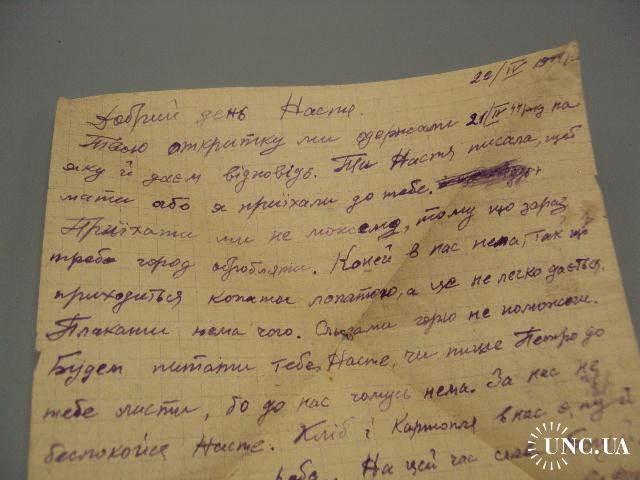 22/IV 1944р
Добрий день Настя.
Твою открытку ми одержали 21/IV 44 года на
яку й даєм відповідь. Ти Настя писала, щоб
мати або я приїхали до тебе.
Приїхати ми не можемо, тому що зараз
треба город обробляти. Коней в нас нема, так що
приходиться копати лопатою, а це не легко дається.
Плакати нема чого. Сльозами горю не поможеш.
Будем питати тебе, Настя, чи пише Петро до
тебе листи, бо до нас чомусь нема. За нас не
беспокойся Настя. Хліб і Картопля в нас є, ну й
На цей час
UNC.UA